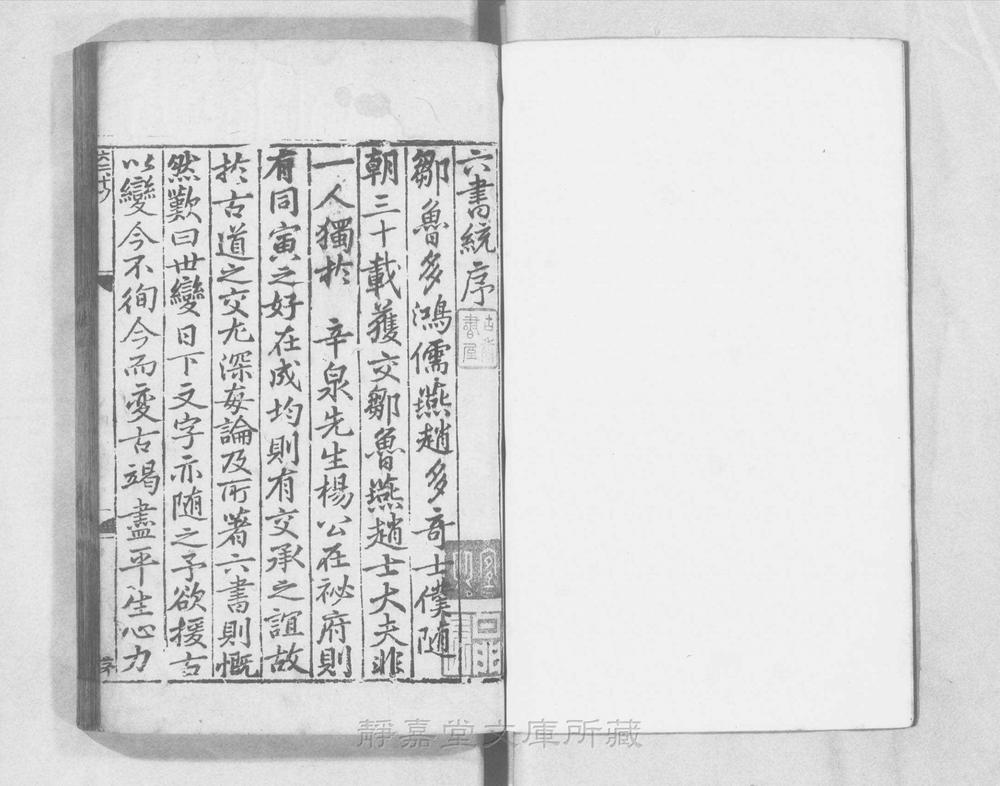 六書統序
鄒魯多鴻儒燕趙多竒士僕随
朝三十載獲交鄒魯燕趙士大夫非
一人獨於　辛泉先生楊公在祕府則
有同寅之好在成均則有交承之誼故
於古道之交尤深每論及所著六書則慨
然歎曰世變日下文字亦随之予欲援古
以變今不徇今而变古竭盡平生心力
序
靜嘉堂文庫所藏